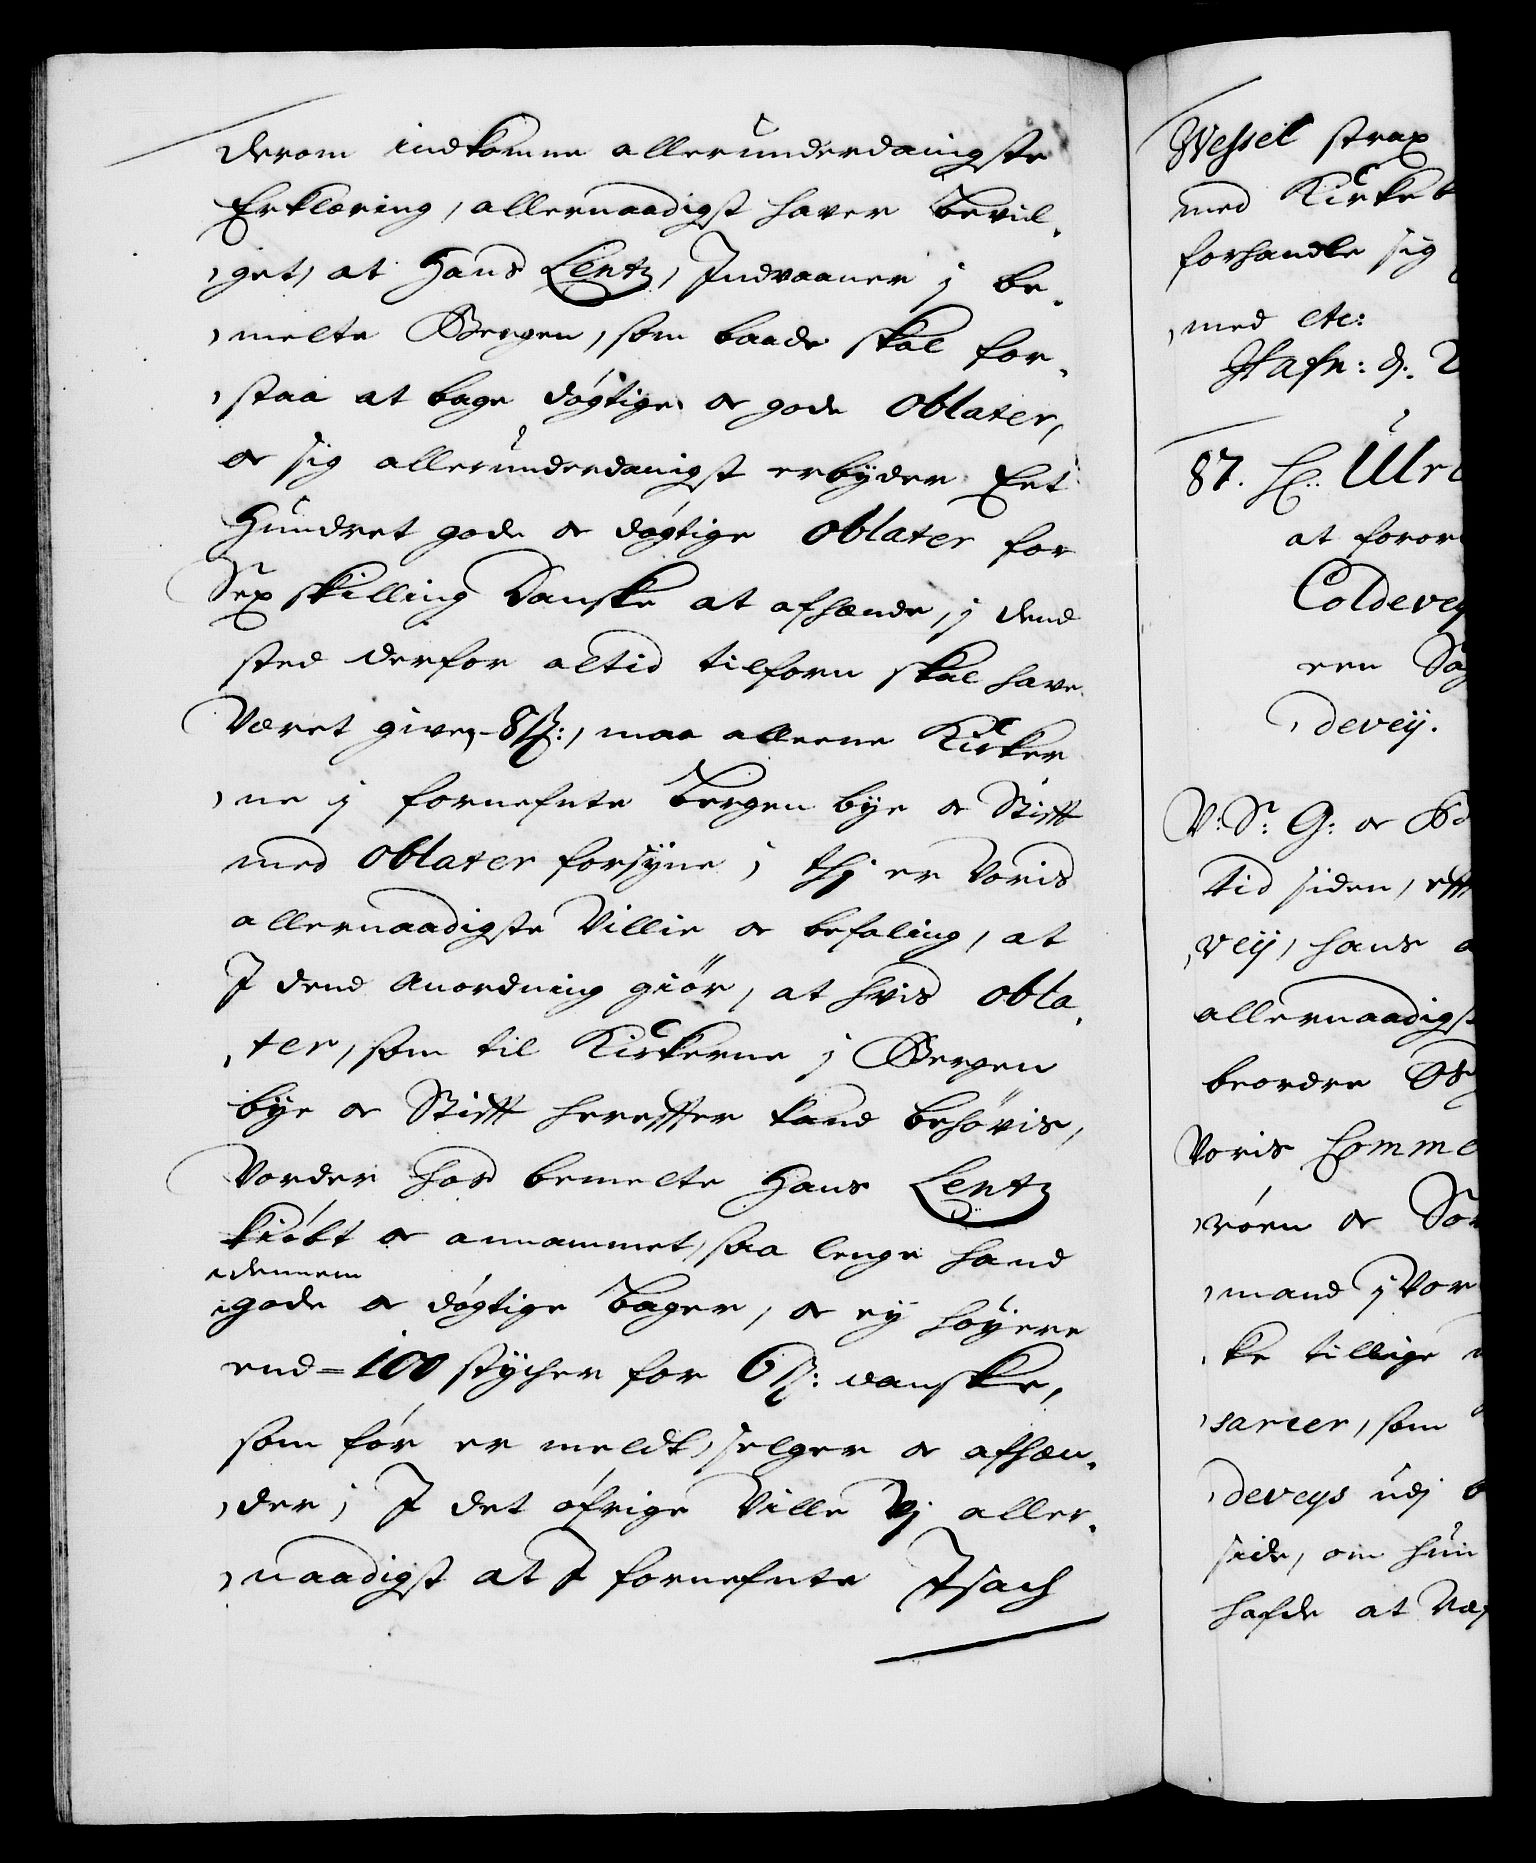 derom indkomne allerunderdanigste
Erklæring, allernaadigst haver bevil-
get, at Hans Lentz, Indvaaner j be-
melte Bergen, som baade skal for-
staa at bage døgtige oc gode oblater,
oc sig allerunderdanigst erbyder Eet
Hundret gode oc døgtige oblater for
Sex skilling Danske at afhænde, j dend
sted derfor altid tilforn skal have
Været given 8 ß:, maa alleene Kirker
ne j fornefnte Bergen bye oc Stifft
med oblater forsyne; thj er Voris
allernaadigste Villie oc befaling, at
I dend Anordning giör, at hvis obla-
ter, som til Kirkerne j Bergen
bye oc Stifft hereffter kand behövis,
Vorder hos bemelte Hans Lentz
kiøbt oc annammet, saa lenge hand
dennem
gode oc døgtige bager, oc ey høyere
end = 100 stycher for 6 ß: danske,
som før er meldt, selger oc afhæn-
der; I det øfrige Ville Vj aller-
naadigst at I fornefnte Isach
Wessel strax
med Kirkeb
forhandle sig
med etc:
Hafn: d: 2
87. H: Ulr
at foror
Coldevey
een Sag
devey.
V: Sr: G: oc
tid siden, efft
vey, hans a
allernaadigst
beordre
Voris Homme
røen oc Sor
mand j Vor
ke tillige
sarier, som
deveys udj b
side, om hun
hafde at Væ